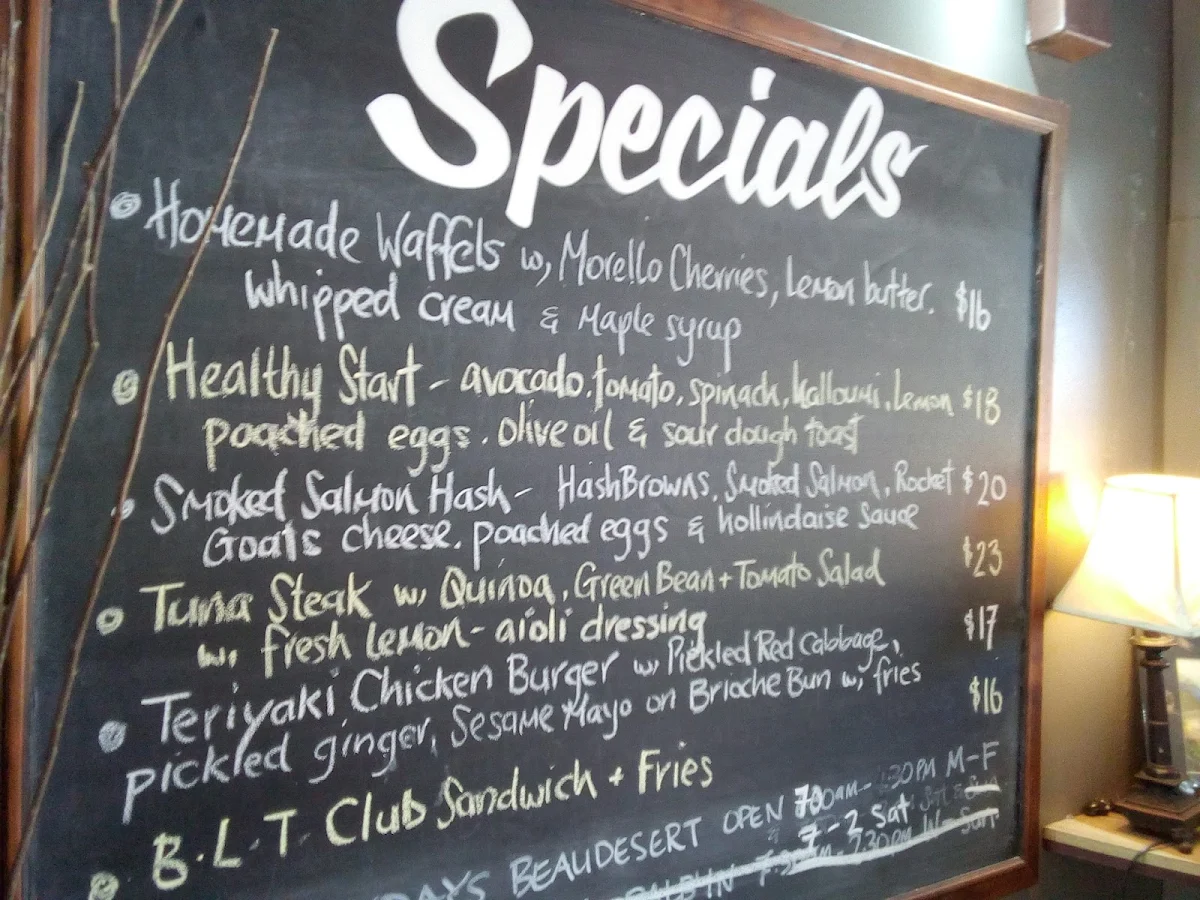 Specials
Homemade Waffels w, Morello Cherries, Lemon butter. $16
whipped cream & Maple syrup
Healthy Start - avocado. tomato, spinach, halloumi. Lemon $18
poached eggs. olive oil & sour dough toast
Smoked Salmon Hash - HashBrowns. Smoked Salmon, Rocket $20
Goats cheese. poached eggs & hollindaise sauce
Tuna Steak w, Quinoa, Green Bean + Tomato Salad $23
w, fresh lemon-aioli dressing
Teriyaki Chicken Burger w, Pickled Red Cabbage, $17
pickled ginger, Sesame Mayo on Brioche Bun w, fries
B.L.T Club Sandwich + Fries $16
BEAUDESERT OPEN 700AM- :30PM M-F
7-2 Sat